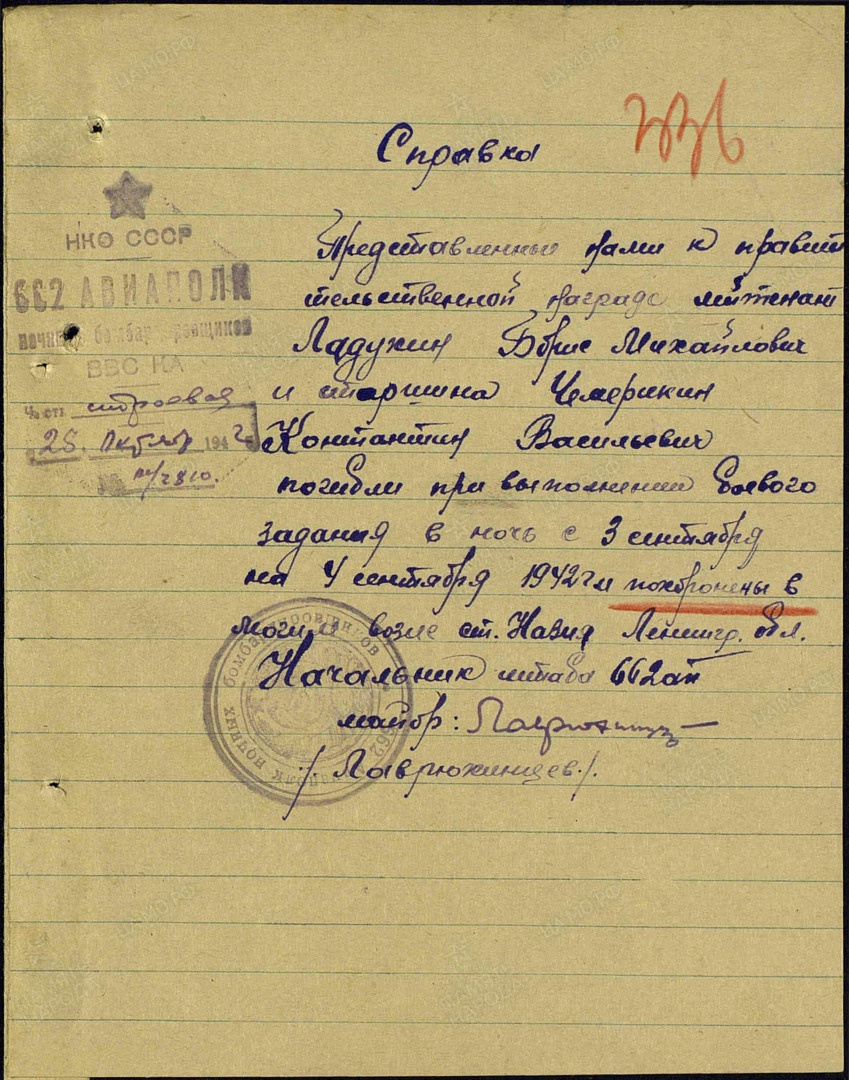 336
Справка
НКО СССР
662 АВИАПОЛК
ночных бомбардировщиков
ВВС КА
Часть строевая
28. Октябр 1942
№
Представленные нами к правит
ельственной награде лейтенант
Ладухин Борис Михайлович
и старшина Чемерикин
Константин Васильевич
погибли при выполнении боевого
задания в ночь с 3 сентября
на 4 сентября 1942г и похоронены в
могиле возле ст. Назия Ленингр. обл.
Начальник штаба 662 ап
майор:
/. Лаврюхинцев ./.
бомбардировщиков
ночных
662
авиаполк
ЦАМО.РФ